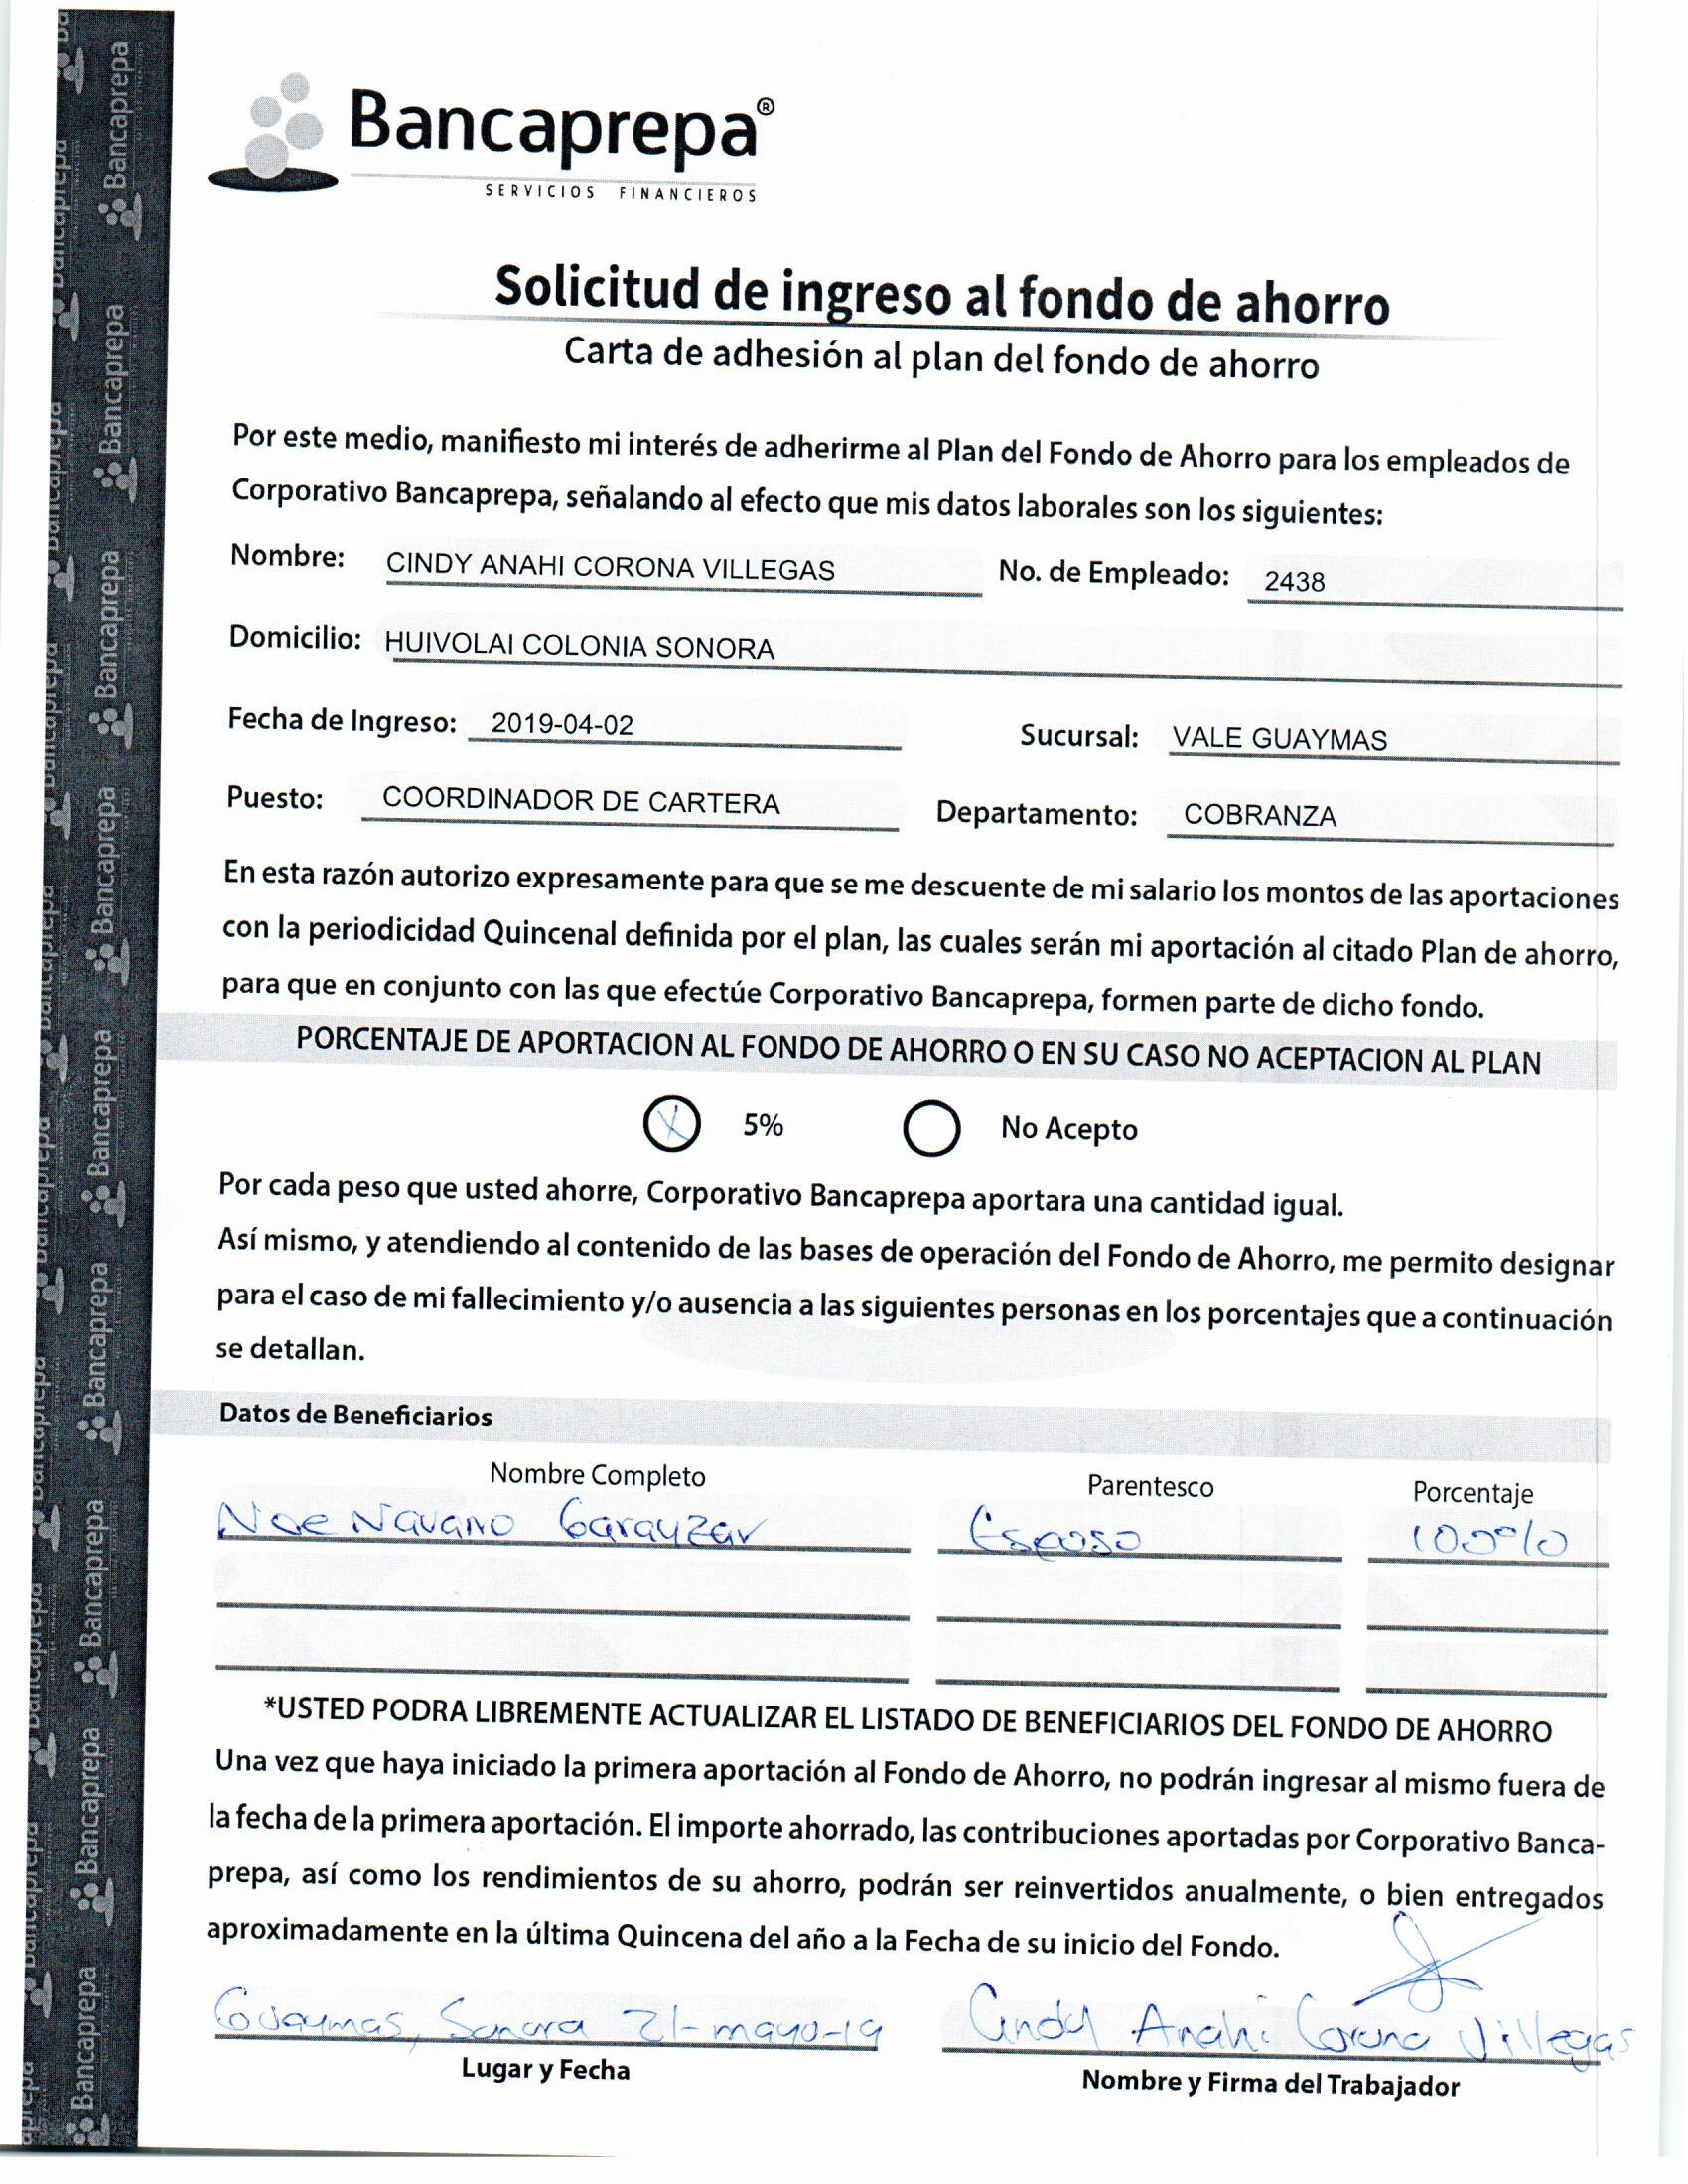 Bancaprepa®
SERVICIOS FINANCIEROS
Solicitud de ingreso al fondo de ahorro
Carta de adhesión al plan del fondo de ahorro
Por este medio, manifiesto mi interés de adherirme al Plan del Fondo de Ahorro para los empleados de
Corporativo Bancaprepa, señalando al efecto que mis datos laborales son los siguientes:
Nombre: CINDY ANAHI CORONA VILLEGAS No. de Empleado: 2438
Domicilio: HUIVOLAI COLONIA SONORA
Fecha de Ingreso: 2019-04-02 Sucursal: VALE GUAYMAS
Puesto: COORDINADOR DE CARTERA Departamento: COBRANZA
En esta razón autorizo expresamente para que se me descuente de mi salario los montos de las aportaciones
con la periodicidad Quincenal definida por el plan, las cuales serán mi aportación al citado Plan de ahorro,
para que en conjunto con las que efectúe Corporativo Bancaprepa, formen parte de dicho fondo.
PORCENTAJE DE APORTACION AL FONDO DE AHORRO O EN SU CASO NO ACEPTACION AL PLAN
X 5% No Acepto
Por cada peso que usted ahorre, Corporativo Bancaprepa aportara una cantidad igual.
Así mismo, y atendiendo al contenido de las bases de operación del Fondo de Ahorro, me permito designar
para el caso de mi fallecimiento y/o ausencia a las siguientes personas en los porcentajes que a continuación
se detallan.
Datos de Beneficiarios
Nombre Completo Parentesco Porcentaje
Noe Navarro Garayzar Esposo 100%
*USTED PODRA LIBREMENTE ACTUALIZAR EL LISTADO DE BENEFICIARIOS DEL FONDO DE AHORRO
Una vez que haya iniciado la primera aportación al Fondo de Ahorro, no podrán ingresar al mismo fuera de
la fecha de la primera aportación. El importe ahorrado, las contribuciones aportadas por Corporativo Banca-
prepa, así como los rendimientos de su ahorro, podrán ser reinvertidos anualmente, o bien entregados
aproximadamente en la última Quincena del año a la Fecha de su inicio del Fondo.
Guaymas, Sonora 21-mayo-19 Cindy Anahi Corona Villegas
Lugar y Fecha Nombre y Firma del Trabajador